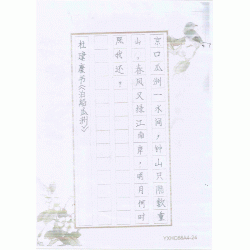 京口瓜洲一水间，钟山只隔數重
山。春风又绿江南岸，明月何时
照我还？
杜津慶书《泊船瓜洲》